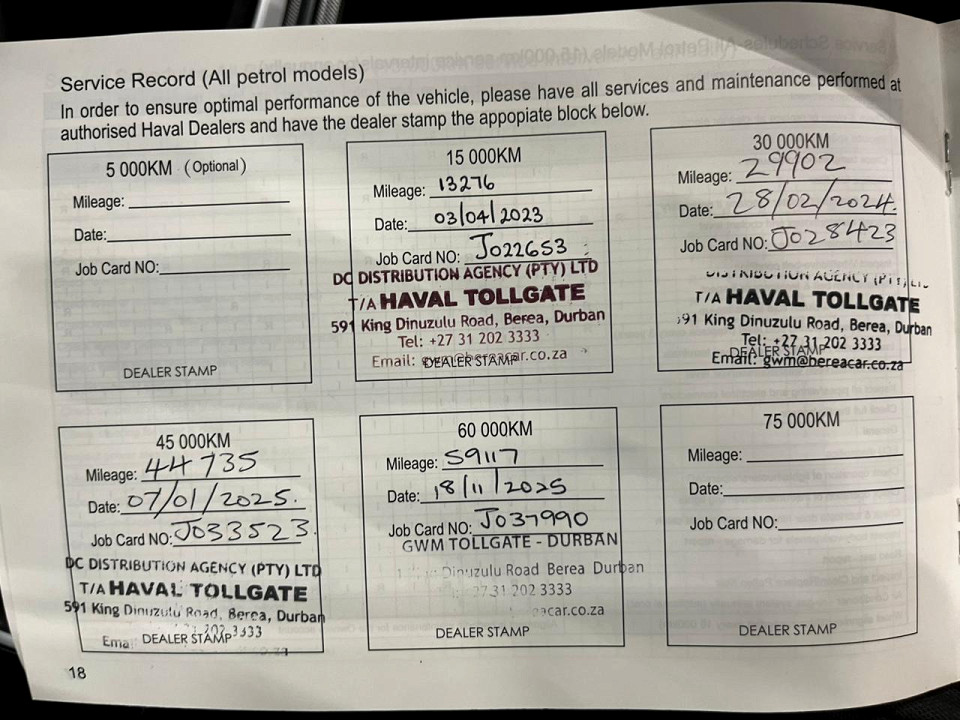 Service Record (All petrol models)
In order to ensure optimal performance of the vehicle, please have all services and maintenance performed at
authorised Haval Dealers and have the dealer stamp the appopiate block below.
5 000KM (Optional)
Mileage:
Date:
Job Card NO:
DEALER STAMP
15 000KM
Mileage: 13276
Date: 03/04/2023
Job Card NO: J022653
DC DISTRIBUTION AGENCY (PTY) LTD
T/A HAVAL TOLLGATE
591 King Dinuzulu Road, Berea, Durban
Tel: +27 31 202 3333
Email: gwm@bereacar.co.za
DEALER STAMP
30 000KM
Mileage: 29902
Date: 28/02/2024.
Job Card NO: J028423
DISTRIBUTION AGENCY (PTY)
T/A HAVAL TOLLGATE
591 King Dinuzulu Road, Berea, Durban
Tel: +27 31 202 3333
DEALER STAMP
Email: gwm@bereacar.co.za
45 000KM
Mileage: 44735
Date: 07/01/2025.
Job Card NO: J033523
DC DISTRIBUTION AGENCY (PTY) LTD
T/A HAVAL TOLLGATE
591 King Dinuzulu Road, Berea, Durban
202 3333
DEALER STAMP
60 000KM
Mileage: 59117
Date: 18/11/2025
Job Card NO: J037990
GWM TOLLGATE - DURBAN
Dinuzulu Road Berea Durban
27 31 202 3333
eacar.co.za
DEALER STAMP
75 000KM
Mileage:
Date:
Job Card NO:
DEALER STAMP
18